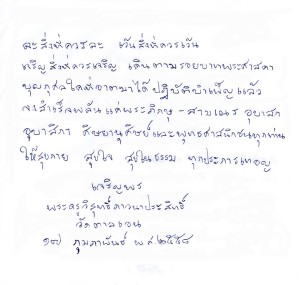 ละสิ่งที่ควรละ เว้นสิ่งที่ควรเว้น
เจริญสิ่งที่ควรเจริญ เดินตามรอยบาทพระศาสดา
บุญกุศลใดที่อาตมาได้ปฏิบัติบำเพ็ญแล้ว
จงสำเร็จพลันแด่พระภิกษุ-สามเณร อุบาสก
อุบาสิกา ศิษยานุศิษย์และพุทธศาสนิกชนทุกท่าน
ให้สุขกาย สุขใจ สุขในธรรม ทุกประการเทอญ
เจริญพร
พระครูวิสุทธิ์ภาวนาประสิทธิ์
วัดตาลเอน
๑๗ กุมภาพันธ์ พ.ศ.๒๕๕๘